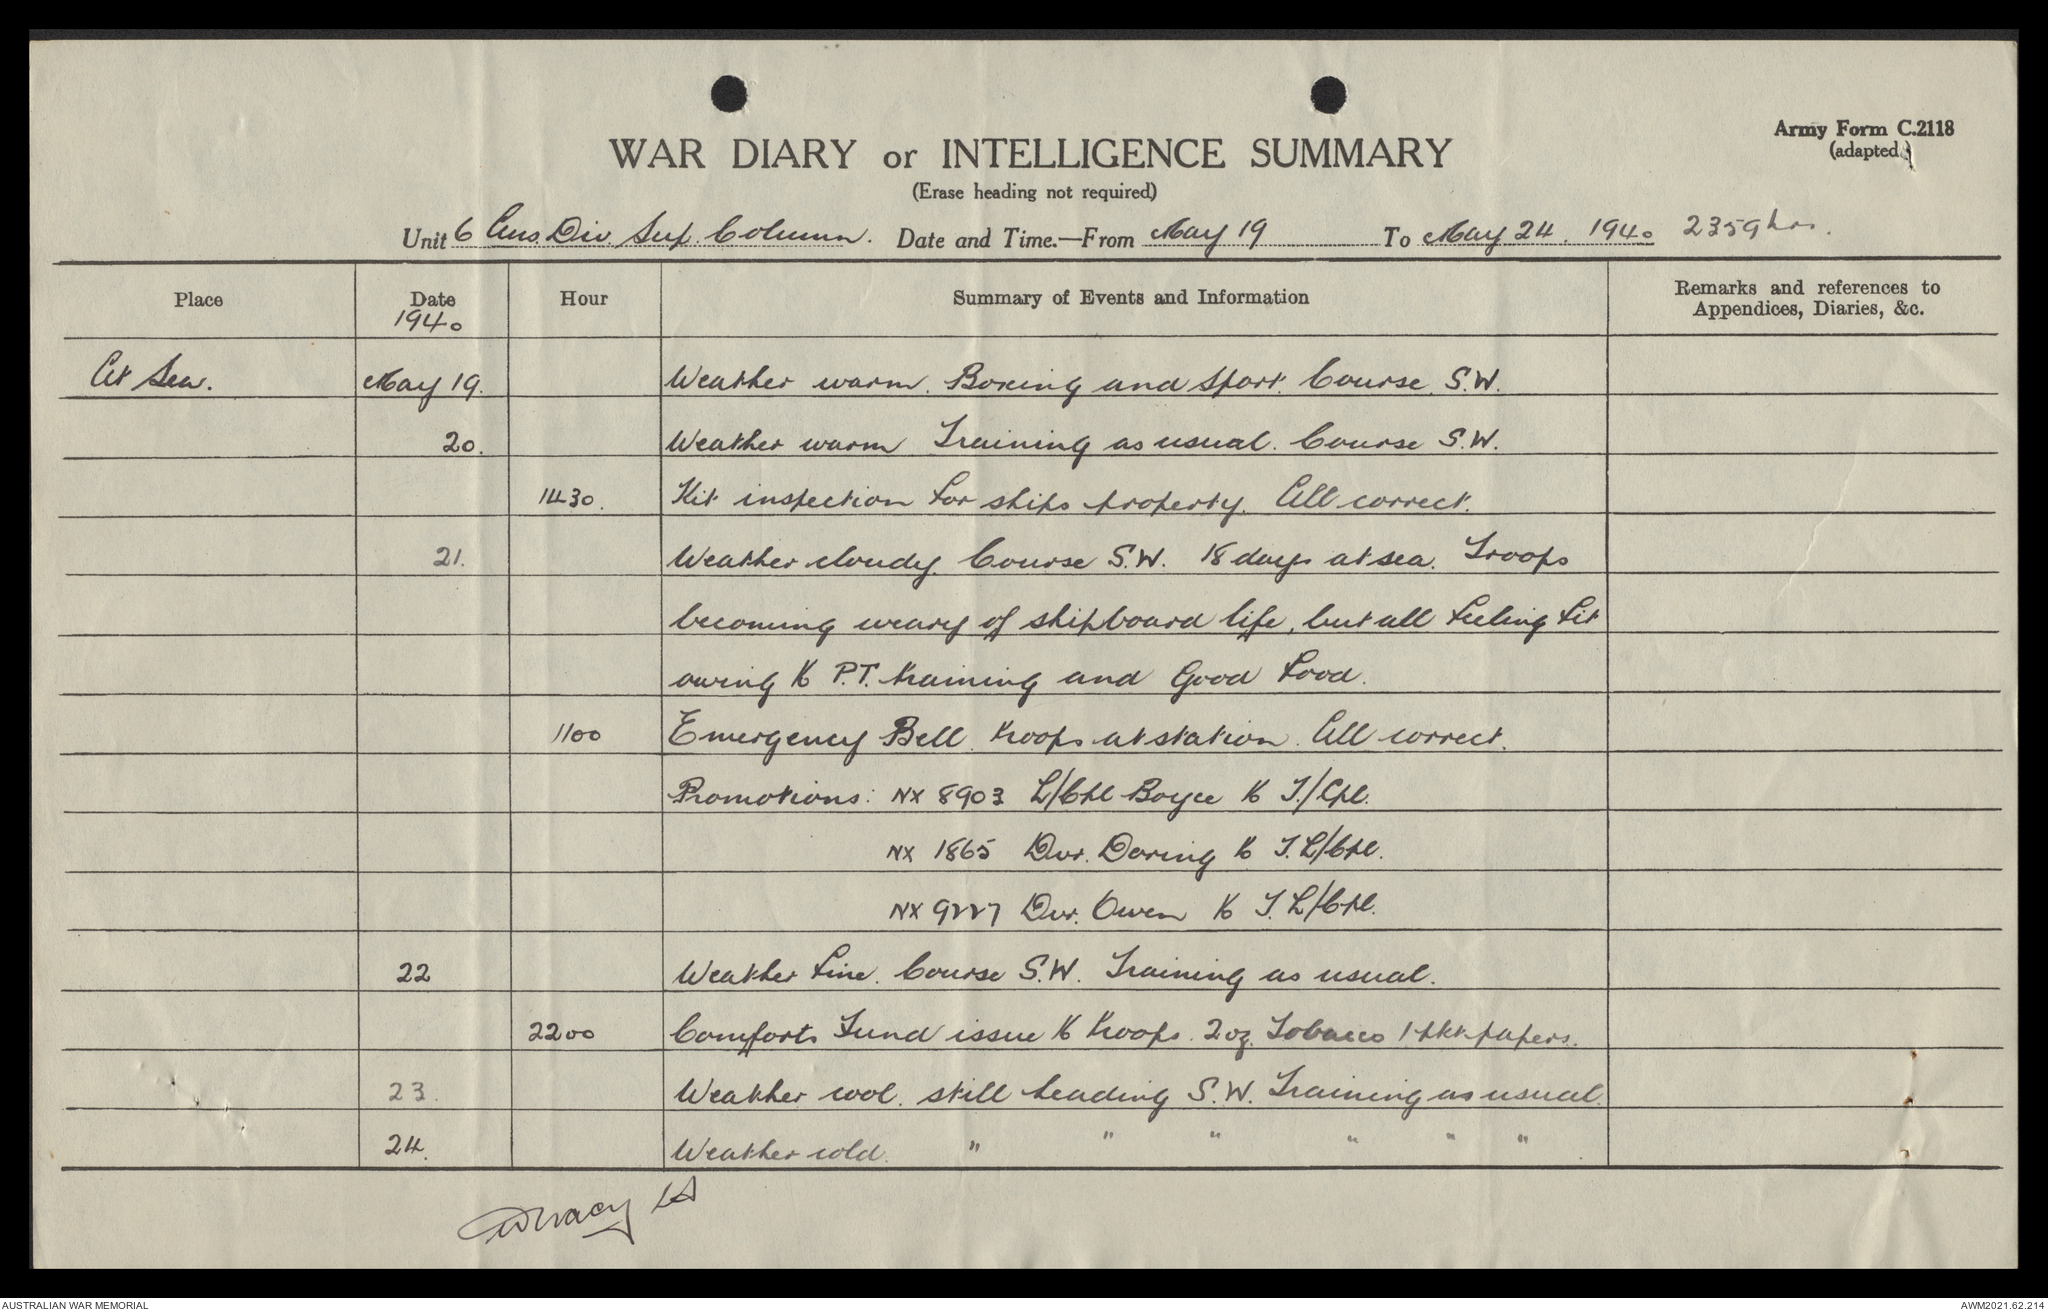 Army Form C.2118
(adapted)
WAR DIARY or INTELLIGENCE SUMMARY
(Erase heading not required)
Unit 6 Aus. Div. Sup. Column. Date and Time.—From May 19 To May 24. 1940 2359 hrs.
Place Date Hour Summary of Events and Information Remarks and references to Appendices, Diaries, &c.
1940
At Sea. May 19. Weather warm. Boxing and sport. Course S.W.
20. Weather warm Training as usual. Course S.W.
1430. Kit inspection for ships property. All correct.
21. Weather cloudy. Course S.W. 18 days at sea. Troops
becoming weary of shipboard life, but all feeling fit
owing to P.T. training and Good food.
1100 Emergency Bell. troops at station. All correct.
Promotions: NX 8903 L/Cpl Boyce to T./Cpl.
NX 1865 Dvr. Doring to T. L/Cpl.
NX 9227 Dvr. Owen to T. L/Cpl.
22 Weather fine. Course S.W. Training as usual.
2200 Comforts Fund issue to troops. 2 oz. Tobacco 1 pkt papers.
23. Weather cool. still heading S.W. Training as usual.
24. Weather cold. " " " " " "
Lt
AUSTRALIAN WAR MEMORIAL
AWM2021.62.214